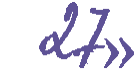 27»